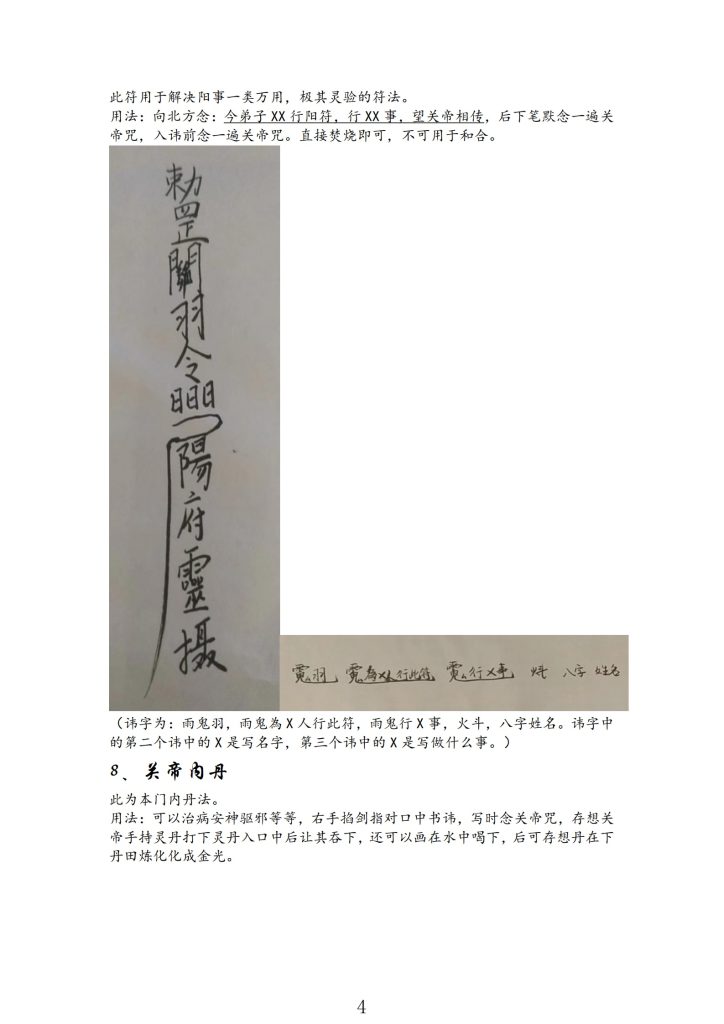 此符用于解决阳事一类万用，极其灵验的符法。
用法：向北方念：今弟子 XX 行阳符，行 XX 事，望关帝相传，后下笔默念一遍关
帝咒，入讳前念一遍关帝咒。直接焚烧即可，不可用于和合。
勅罡關羽令
陽府靈摄
羽 為X人行此符 行X事 八字 姓名
（讳字为：雨鬼羽，雨鬼為 X 人行此符，雨鬼行 X 事，火斗，八字姓名。讳字中
的第二个讳中的 X 是写名字，第三个讳中的 X 是写做什么事。）
8、关帝内丹
此为本门内丹法。
用法：可以治病安神驱邪等等，右手掐剑指对口中书讳，写时念关帝咒，存想关
帝手持灵丹打下灵丹入口中后让其吞下，还可以画在水中喝下，后可存想丹在下
丹田炼化化成金光。
4